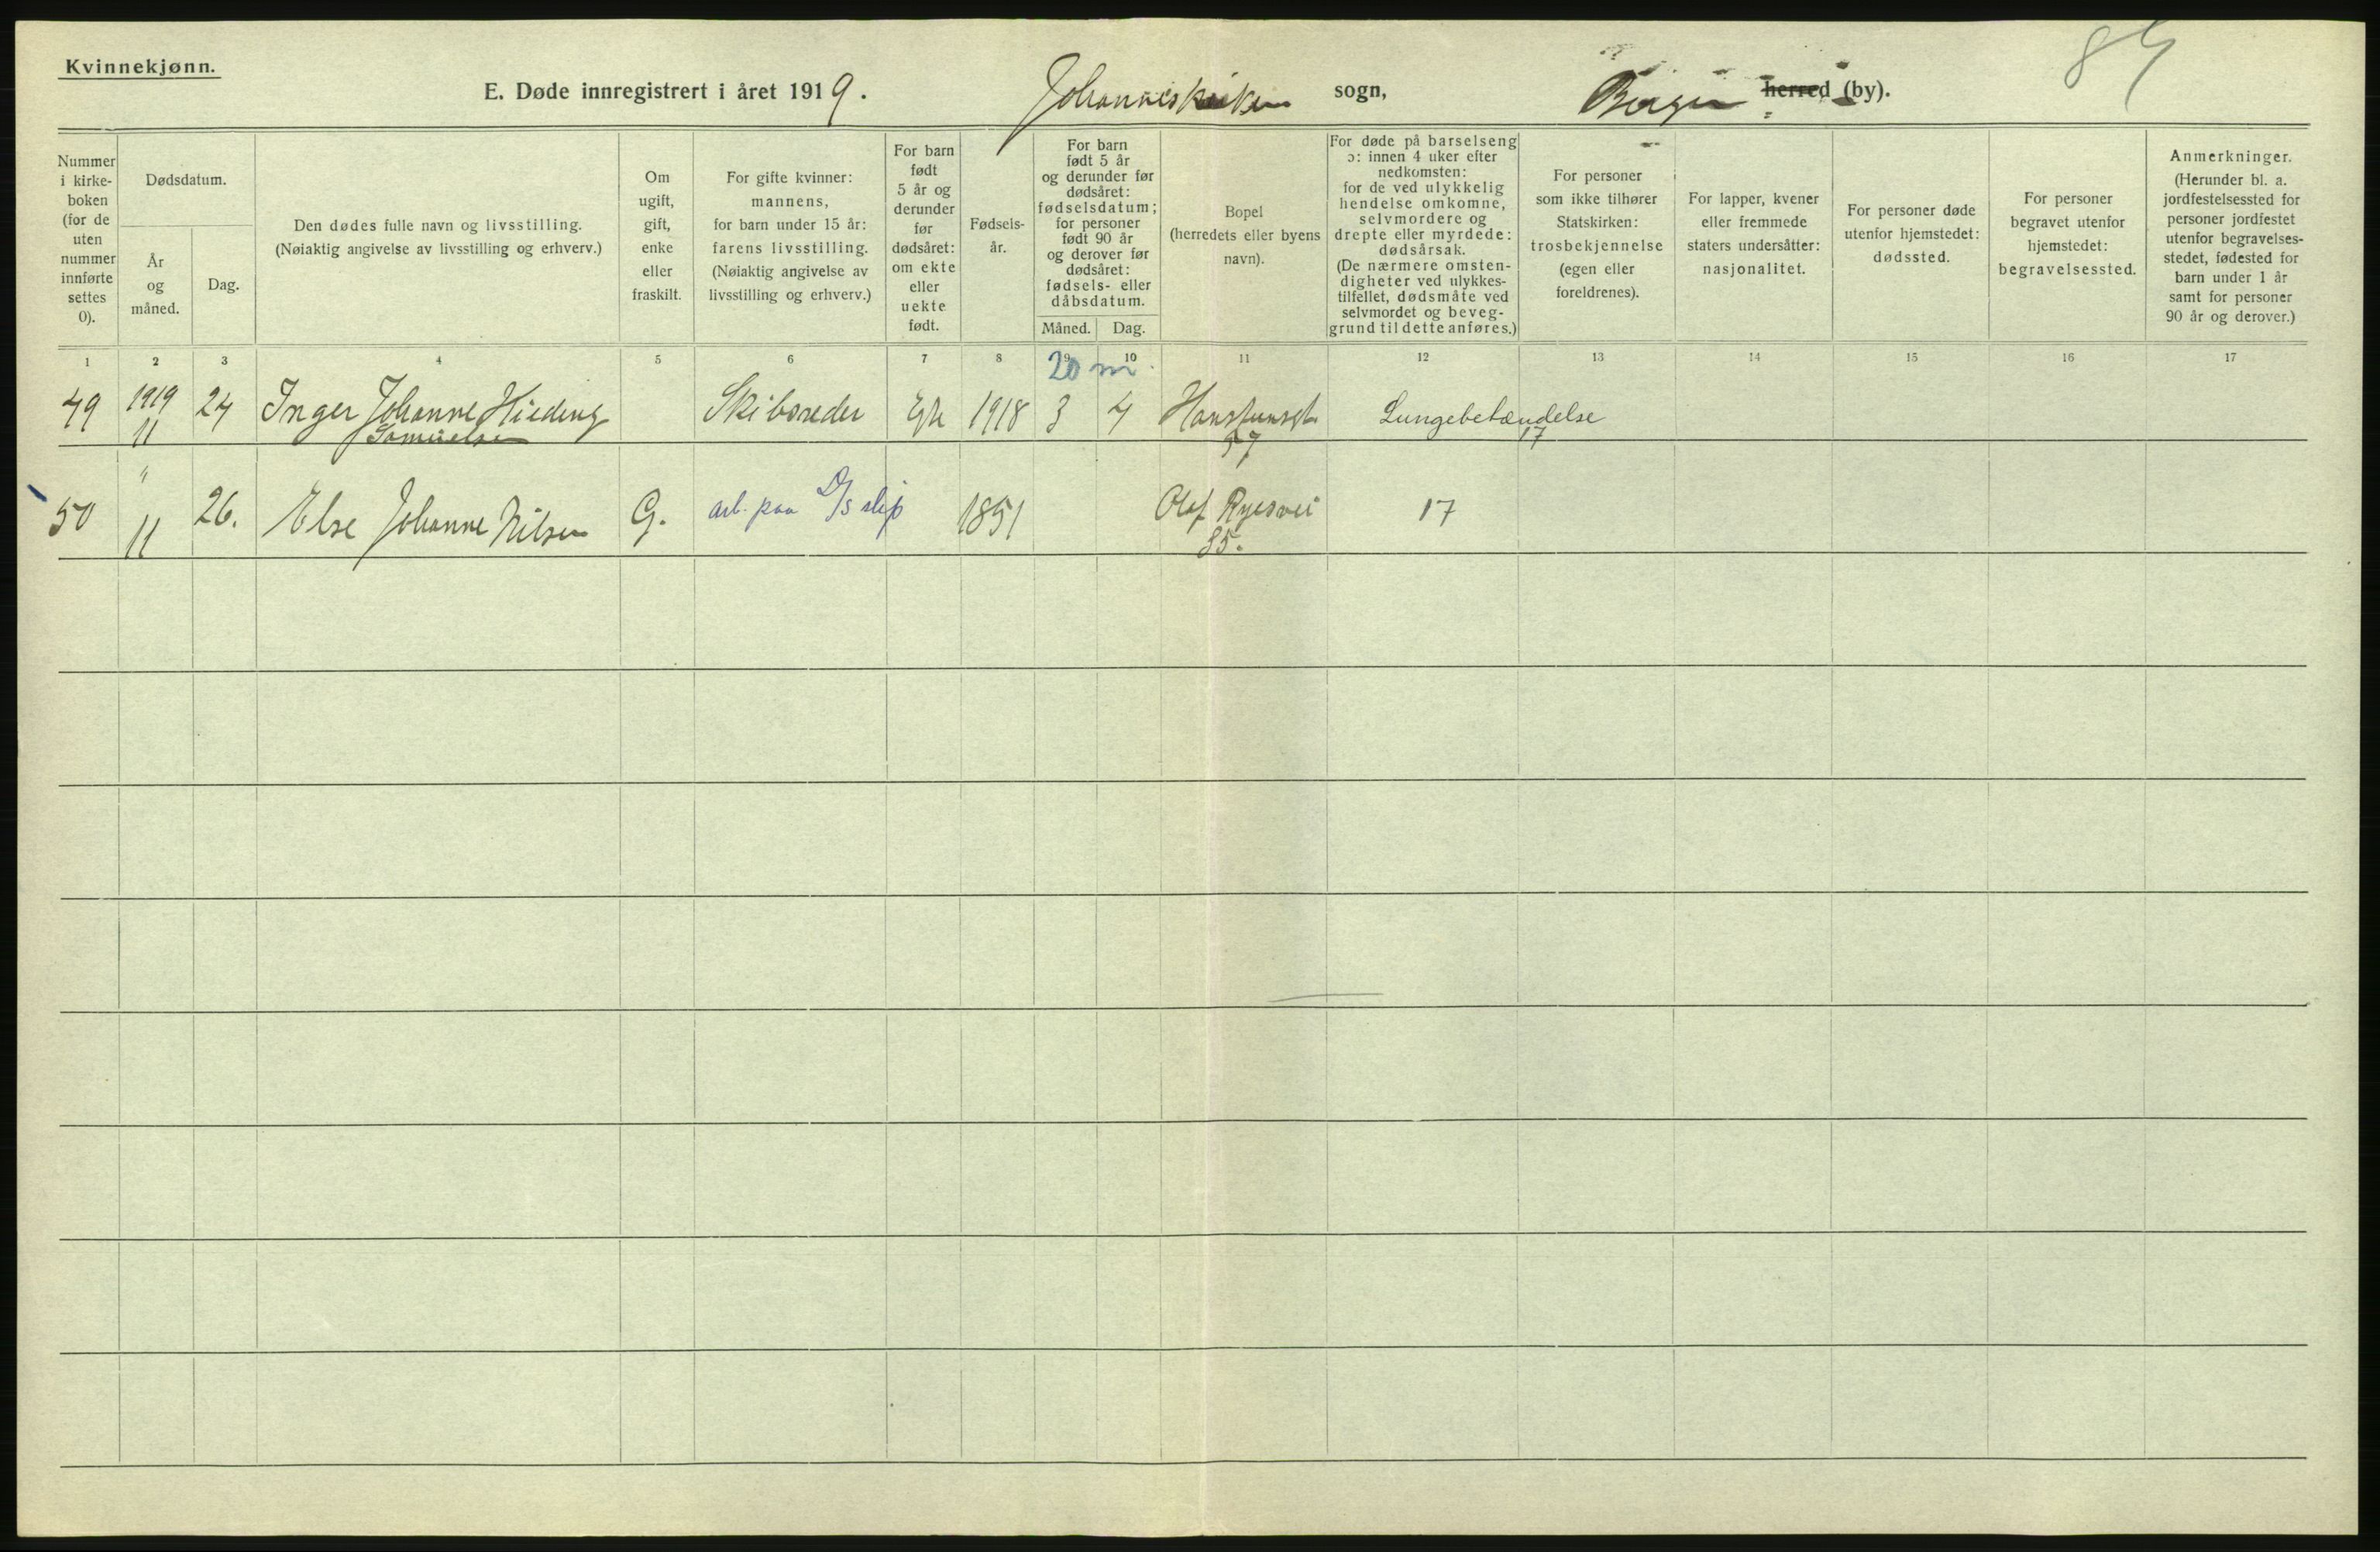 Kvinnekjønn.
84
E. Døde innregistrert i året 1919. Johanneskirken sogn, Bergen herred (by).
Nummer i kirke-boken (for de uten nummer innførte settes 0).
Dødsdatum.
År og måned.
Dag.
Den dødes fulle navn og livsstilling.
(Nøiaktig angivelse av livsstilling og erhverv.)
Om ugift, gift, enke eller fraskilt.
For gifte kvinner: mannens, for barn under 15 år: farens livsstilling.
(Nøiaktig angivelse av livsstilling og erhverv.)
For barn født 5 år og derunder før dødsåret: om ekte eller uekte født.
Fødsels-år.
For barn født 5 år og derunder før dødsåret: fødselsdatum; for personer født 90 år og derover før dødsåret: fødsels- eller dåbsdatum.
Måned.
Dag.
Bopel
(herredets eller byens navn).
For døde på barselseng ɔ: innen 4 uker efter nedkomsten: for de ved ulykkelig hendelse omkomne, selvmordere og drepte eller myrdede: dødsårsak.
(De nærmere omsten-digheter ved ulykkes-tilfellet, dødsmåte ved selvmordet og beveg-grund til dette anføres.)
For personer som ikke tilhører Statskirken: trosbekjennelse (egen eller foreldrenes).
For lapper, kvener eller fremmede staters undersåtter: nasjonalitet.
For personer døde utenfor hjemstedet: dødssted.
For personer begravet utenfor hjemstedet: begravelsessted.
Anmerkninger.
(Herunder bl. a. jordfestelsessted for personer jordfestet utenfor begravelses-stedet, fødested for barn under 1 år samt for personer 90 år og derover.)
1 2 3 4 5 6 7 8 9 10 11 12 13 14 15 16 17
20 m.
49 1919 11 24 Inger Johanne Samuelsen Skibsreder Egte 1918 3 4 57 Lungebetændelse 17
50 " 11 26. Else Johanne Nilsen G. arb. paa D/S slip 1851 Olaf Ryesvei 85. 17